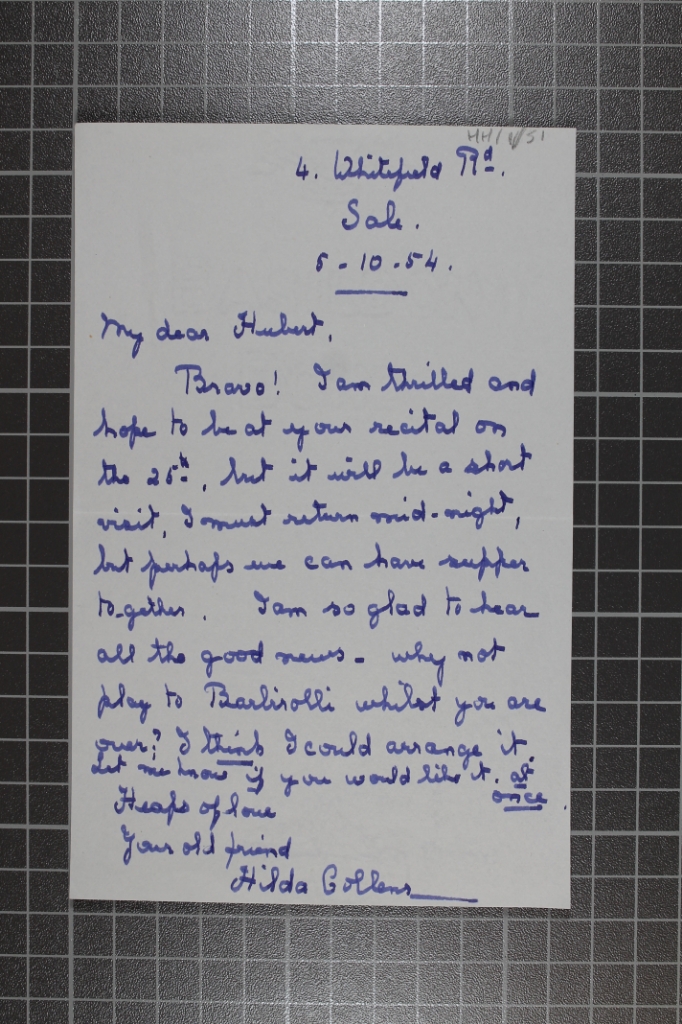 HH/1/51
4. Whitefield Rd.
Sale.
5-10-54.
My dear Hubert,
Bravo! I am thrilled and
hope to be at your recital on
the 25th, but it will be a short
visit, I must return mid-night,
but perhaps we can have supper
to-gether. I am so glad to hear
all the good news - why not
play to Barbirolli whilst you are
over? I think I could arrange it.
Let me know if you would like it. at
once.
Heaps of love
Your old friend
Hilda Collens